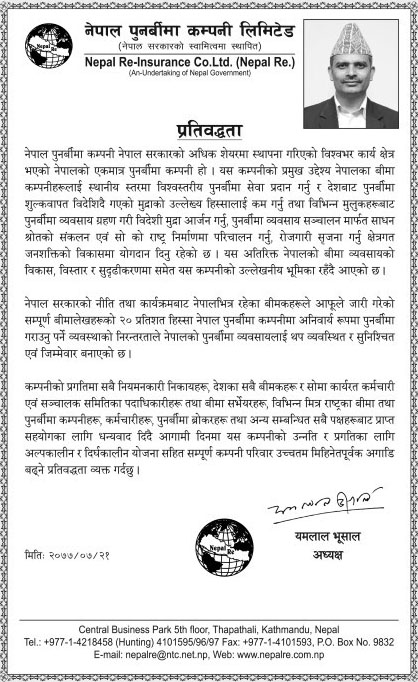 नेपाल पुनर्बीमा कम्पनी लिमिटेड
(नेपाल सरकारको स्वामित्वमा स्थापित)
Nepal Re-Insurance Co.Ltd. (Nepal Re.)
(An-Undertaking of Nepal Government)
Nepal Re
प्रतिवद्धता
नेपाल पुनर्बीमा कम्पनी नेपाल सरकारको अधिक शेयरमा स्थापना गरिएको विश्वभर कार्य क्षेत्र
भएको नेपालको एकमात्र पुनर्बीमा कम्पनी हो । यस कम्पनीको प्रमुख उद्देश्य नेपालका बीमा
कम्पनीहरूलाई स्थानीय स्तरमा विश्वस्तरीय पुनर्बीमा सेवा प्रदान गर्नु र देशबाट पुनर्बीमा
शुल्कवापत विदेशिदै गएको मुद्राको उल्लेख्य हिस्सालाई कम गर्नु तथा विभिन्न मुलुकहरूबाट
पुनर्बीमा व्यवसाय ग्रहण गरी विदेशी मुद्रा आर्जन गर्नु, पुनर्बीमा व्यवसाय सञ्चालन मार्फत साधन
श्रोतको संकलन एवं सो को राष्ट्र निर्माणमा परिचालन गर्नु, रोजगारी सृजना गर्नु क्षेत्रगत
जनशक्तिको विकासमा योगदान दिनु रहेको छ । यस अतिरिक्त नेपालको बीमा व्यवसायको
विकास, विस्तार र सुदृढीकरणमा समेत यस कम्पनीको उल्लेखनीय भूमिका रहँदै आएको छ ।
नेपाल सरकारको नीति तथा कार्यक्रमबाट नेपालभित्र रहेका बीमकहरूले आफूले जारी गरेको
सम्पूर्ण बीमालेखहरूको २० प्रतिशत हिस्सा नेपाल पुनर्बीमा कम्पनीमा अनिवार्य रूपमा पुनर्बीमा
गराउनु पर्ने व्यवस्थाको निरन्तरताले नेपालको पुनर्बीमा व्यवसायलाई थप व्यवस्थित र सुनिश्चित
एवं जिम्मेवार बनाएको छ ।
कम्पनीको प्रगतिमा सबै नियमनकारी निकायहरू, देशका सबै बीमकहरू र सोमा कार्यरत कर्मचारी
एवं सञ्चालक समितिका पदाधिकारीहरू तथा बीमा सर्भेयरहरू, विभिन्न मित्र राष्ट्रका बीमा तथा
पुनर्बीमा कम्पनीहरू, कर्मचारीहरू, पुनर्बीमा ब्रोकरहरू तथा अन्य सम्बन्धित सबै पक्षहरूबाट प्राप्त
सहयोगका लागि धन्यवाद दिँदै आगामी दिनमा यस कम्पनीको उन्नति र प्रगतिका लागि
अल्पकालीन र दिर्घकालीन योजना सहित सम्पूर्ण कम्पनी परिवार उच्चतम मिहिनेतपूर्वक अगाडि
बढ्ने प्रतिवद्धता व्यक्त गर्दछु ।
Nepal Re
यमलाल भूसाल
मितिः २०७७/०७/२१
अध्यक्ष
Central Business Park 5th floor, Thapathali, Kathmandu, Nepal
Tel.: +977-1-4218458 (Hunting) 4101595/96/97 Fax: +977-1-4101593, P.O. Box No. 9832
E-mail: nepalre@ntc.net.np, Web: www.nepalre.com.np